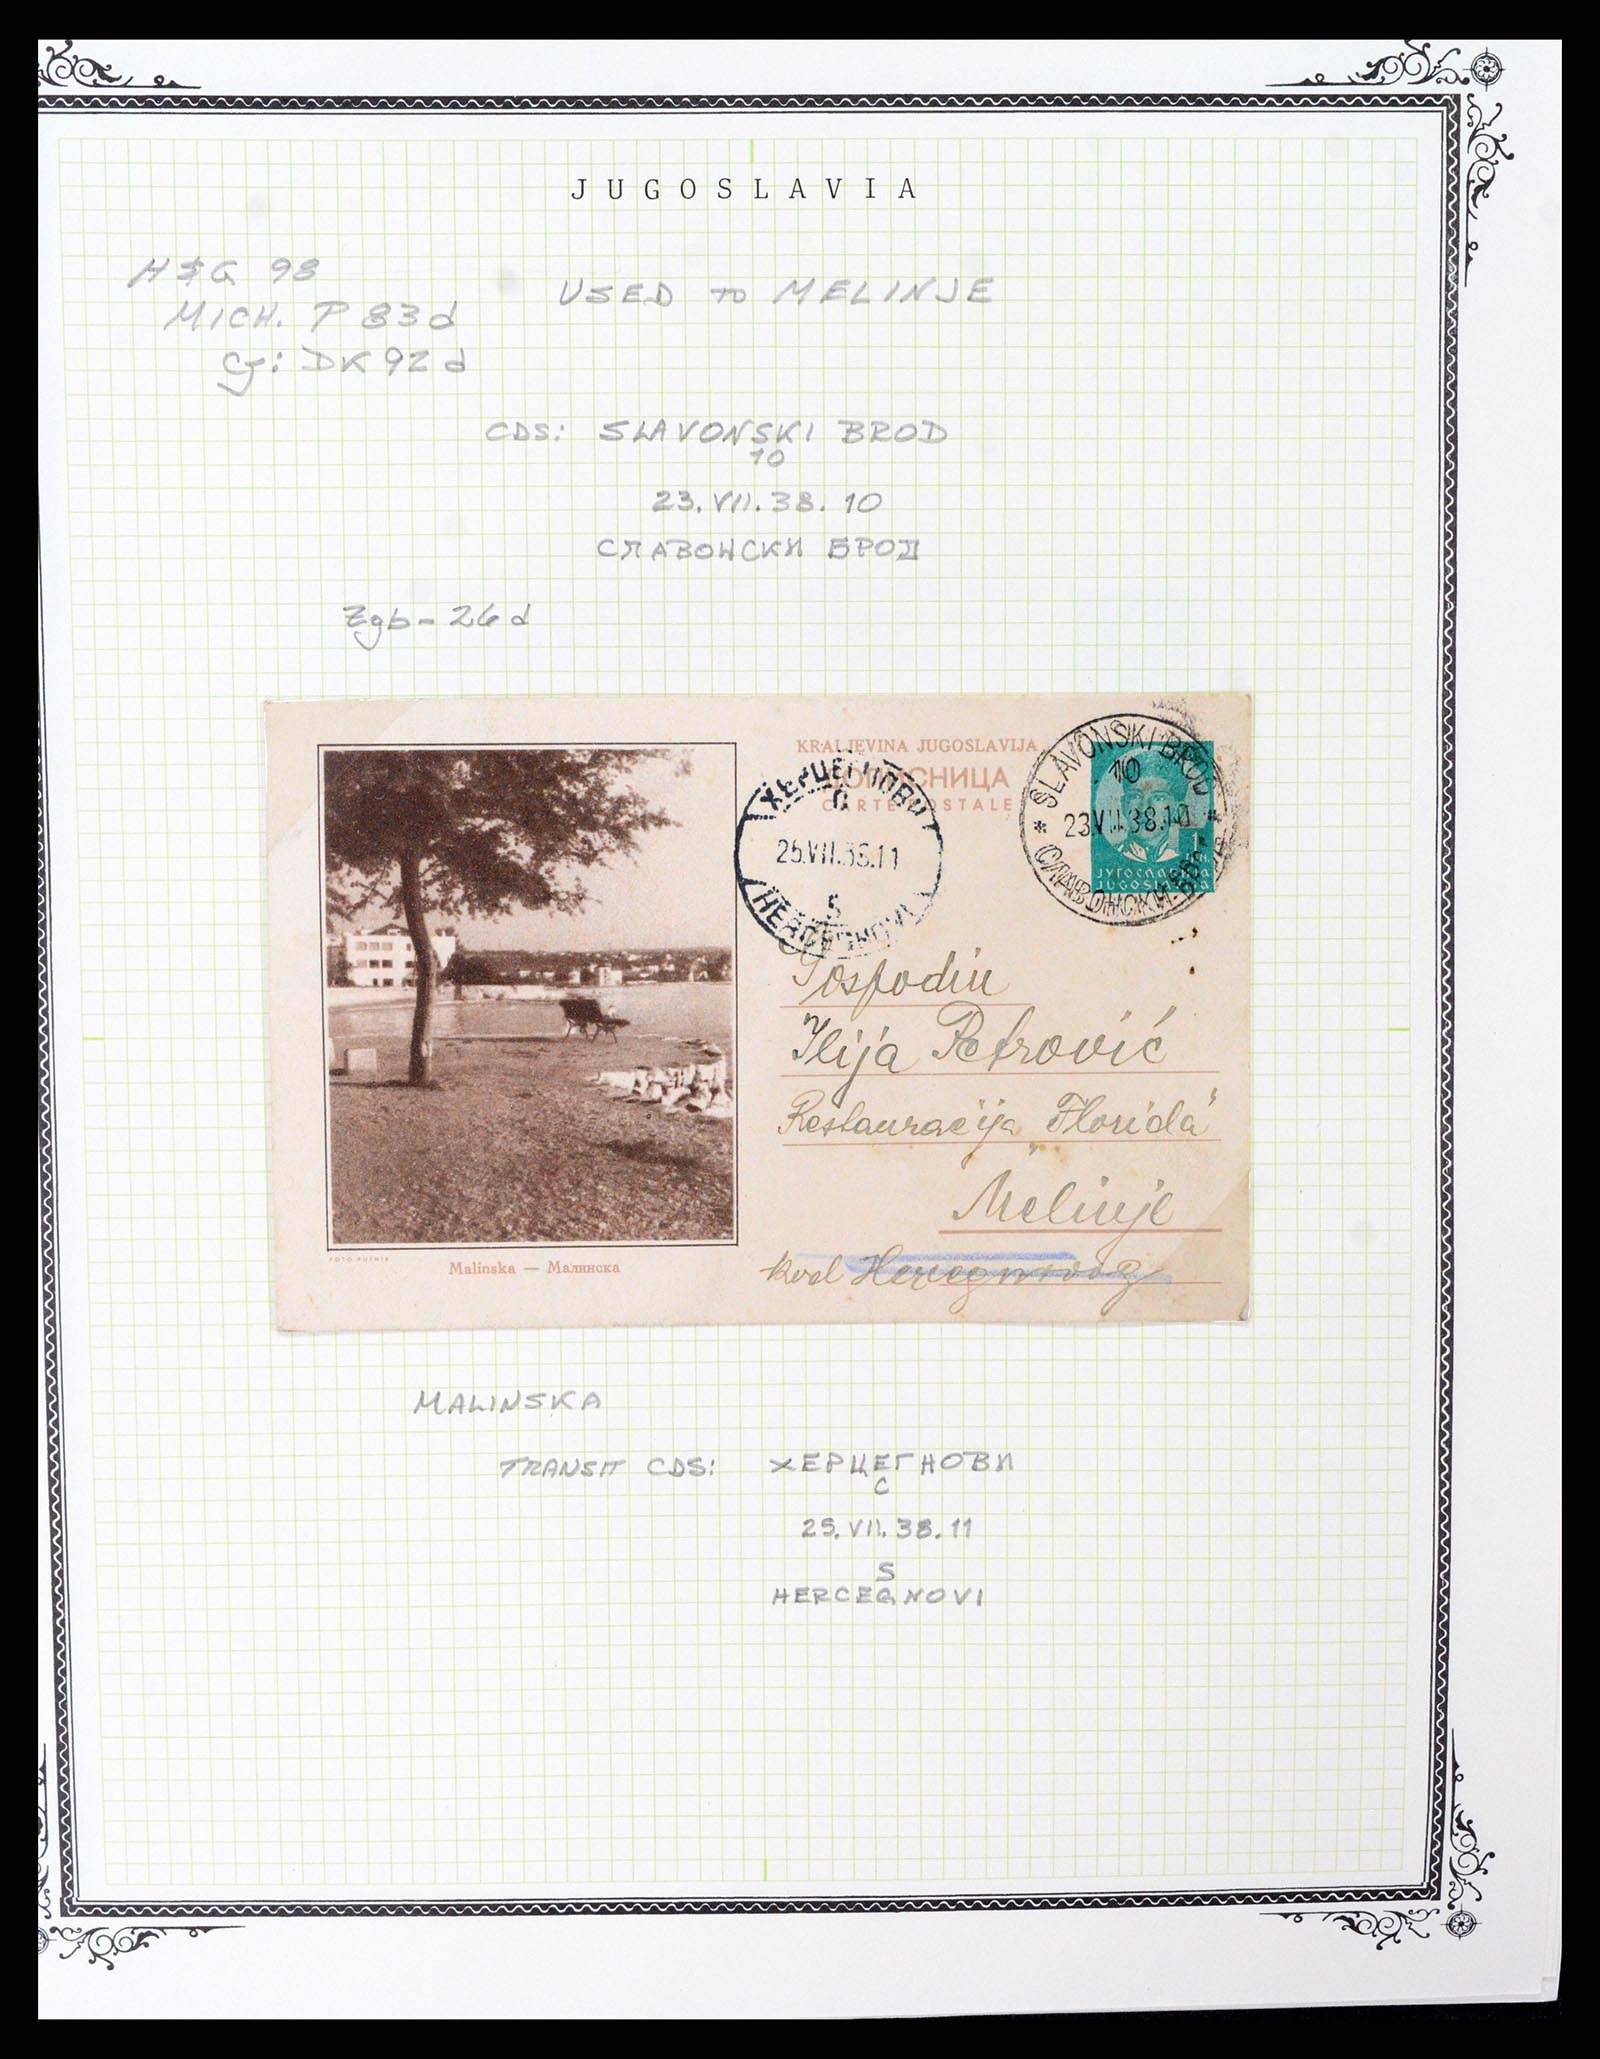 JUGOSLAVIA
H&G 98
MICH. P 83d
USED TO MELINJE
Cj: DK 92 d
CDS: SLAVONSKI BROD
10
23.VII.38.10
СЛАВОНСКИ БРОД
Zgb-26d
KRALJEVINA JUGOSLAVIJA
ДОПИСНИЦА
CARTE POSTALE
SLAVONSKI BROD
10
* 23 VII.38.10 *
СЛАВОНСКИ БРОД
ЈУГОСЛАВИЈА
JUGOSLAVIJA
ХЕРЦЕГНОВИ
25.VII.38.11
S
HERCEGNOVI
Gospodin
Ilija Petrović
Restauracija „Florida"
Melinje
kod Hercegnovog
FOTO PUTNIK
Malinska — Малинска
MALINSKA
TRANSIT CDS: ХЕРЦЕГНОВИ
С
25.VII.38.11
S
HERCEGNOVI